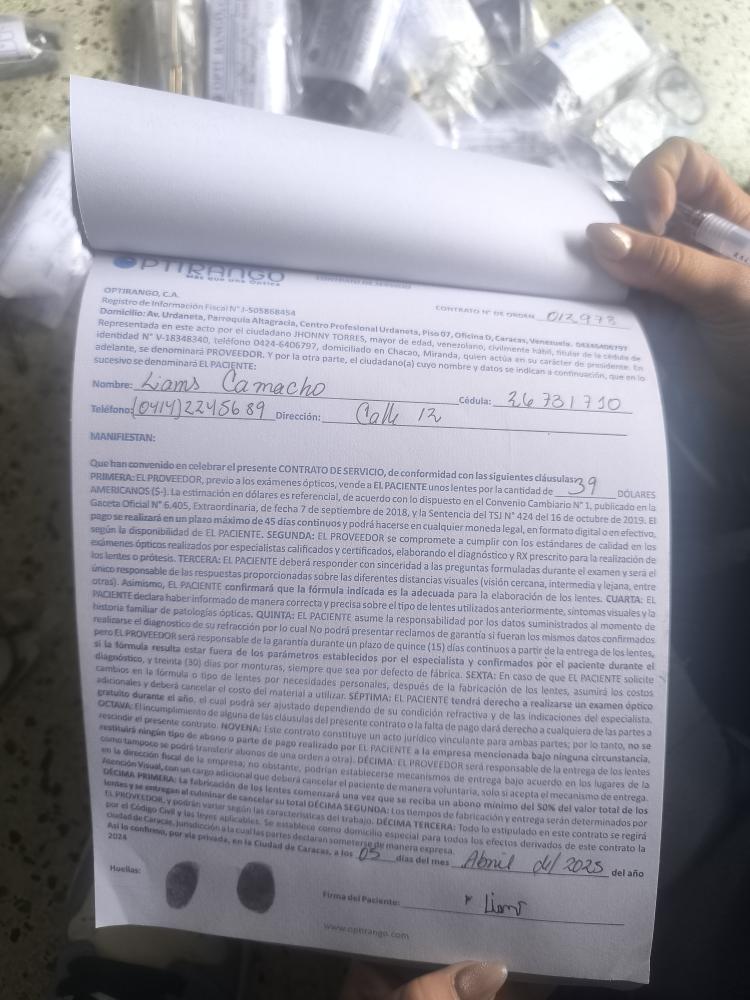 OPTIRANGO
MÁS QUE UNA ÓPTICA
CONTRATO DE SERVICIO
OPTIRANGO, C.A.
Registro de Información Fiscal N° J-505868454
CONTRATO N° DE ORDEN 012978
Domicilio: Av. Urdaneta, Parroquia Altagracia, Centro Profesional Urdaneta, Piso 07, Oficina D, Caracas, Venezuela. 04246406797
Representada en este acto por el ciudadano JHONNY TORRES, mayor de edad, venezolano, civilmente hábil, titular de la cédula de
identidad N° V-18348340, teléfono 0424-6406797, domiciliado en Chacao, Miranda, quien actúa en su carácter de presidente. En
adelante, se denominará PROVEEDOR. Y por la otra parte, el ciudadano(a) cuyo nombre y datos se indican a continuación, que en lo
sucesivo se denominará EL PACIENTE:
Nombre: Liams Camacho Cédula: 26 731 710
Teléfono: (0414)2245689 Dirección: Calle 12
MANIFIESTAN:
Que han convenido en celebrar el presente CONTRATO DE SERVICIO, de conformidad con las siguientes cláusulas:
PRIMERA: EL PROVEEDOR, previo a los exámenes ópticos, vende a EL PACIENTE unos lentes por la cantidad de 39 DÓLARES
AMERICANOS ($-). La estimación en dólares es referencial, de acuerdo con lo dispuesto en el Convenio Cambiario N° 1, publicado en la
Gaceta Oficial N° 6.405, Extraordinaria, de fecha 7 de septiembre de 2018, y la Sentencia del TSJ N° 424 del 16 de octubre de 2019. El
pago se realizará en un plazo máximo de 45 días continuos y podrá hacerse en cualquier moneda legal, en formato digital o en efectivo,
según la disponibilidad de EL PACIENTE. SEGUNDA: EL PROVEEDOR se compromete a cumplir con los estándares de calidad en los
exámenes ópticos realizados por especialistas calificados y certificados, elaborando el diagnóstico y RX prescrito para la realización de
los lentes o prótesis. TERCERA: EL PACIENTE deberá responder con sinceridad a las preguntas formuladas durante el examen y será el
único responsable de las respuestas proporcionadas sobre las diferentes distancias visuales (visión cercana, intermedia y lejana, entre
otras). Asimismo, EL PACIENTE confirmará que la fórmula indicada es la adecuada para la elaboración de los lentes. CUARTA: EL
PACIENTE declara haber informado de manera correcta y precisa sobre el tipo de lentes utilizados anteriormente, síntomas visuales y la
historia familiar de patologías ópticas. QUINTA: EL PACIENTE asume la responsabilidad por los datos suministrados al momento de
realizarse el diagnostico de su refracción por lo cual No podrá presentar reclamos de garantía si fueran los mismos datos confirmados
pero EL PROVEEDOR será responsable de la garantía durante un plazo de quince (15) días continuos a partir de la entrega de los lentes,
si la fórmula resulta estar fuera de los parámetros establecidos por el especialista y confirmados por el paciente durante el
diagnóstico, y treinta (30) días por monturas, siempre que sea por defecto de fábrica. SEXTA: En caso de que EL PACIENTE solicite
cambios en la fórmula o tipo de lentes por necesidades personales, después de la fabricación de los lentes, asumirá los costos
adicionales y deberá cancelar el costo del material a utilizar. SÉPTIMA: EL PACIENTE tendrá derecho a realizarse un examen óptico
gratuito durante el año, el cual podrá ser ajustado dependiendo de su condición refractiva y de las indicaciones del especialista.
OCTAVA: El incumplimiento de alguna de las cláusulas del presente contrato o la falta de pago dará derecho a cualquiera de las partes a
rescindir el presente contrato. NOVENA: Este contrato constituye un acto jurídico vinculante para ambas partes; por lo tanto, no se
restituirá ningún tipo de abono o parte de pago realizado por EL PACIENTE a la empresa mencionada bajo ninguna circunstancia,
como tampoco se podrá transferir abonos de una orden a otra). DÉCIMA: EL PROVEEDOR será responsable de la entrega de los lentes
en la dirección fiscal de la empresa; no obstante, podrían establecerse mecanismos de entrega bajo acuerdo en los lugares de la
Atención Visual, con un cargo adicional que deberá cancelar el paciente de manera voluntaria, solo si acepta el mecanismo de entrega.
DÉCIMA PRIMERA: La fabricación de los lentes comenzará una vez que se reciba un abono mínimo del 50% del valor total de los
lentes y se entregan al culminar de cancelar su total DÉCIMA SEGUNDA: Los tiempos de fabricación y entrega serán determinados por
EL PROVEEDOR, y podrán variar según las características del trabajo. DÉCIMA TERCERA: Todo lo estipulado en este contrato se regirá
por el Código Civil y las leyes aplicables. Se establece como domicilio especial para todos los efectos derivados de este contrato la
ciudad de Caracas, Jurisdicción a la cual las partes declaran someterse de manera expresa.
Así lo confirmo, por vía privada, en la Ciudad de Caracas, a los 05 días del mes Abril del 2025 del año
2024
Huellas:
Firma del Paciente: Liams
www.optirango.com